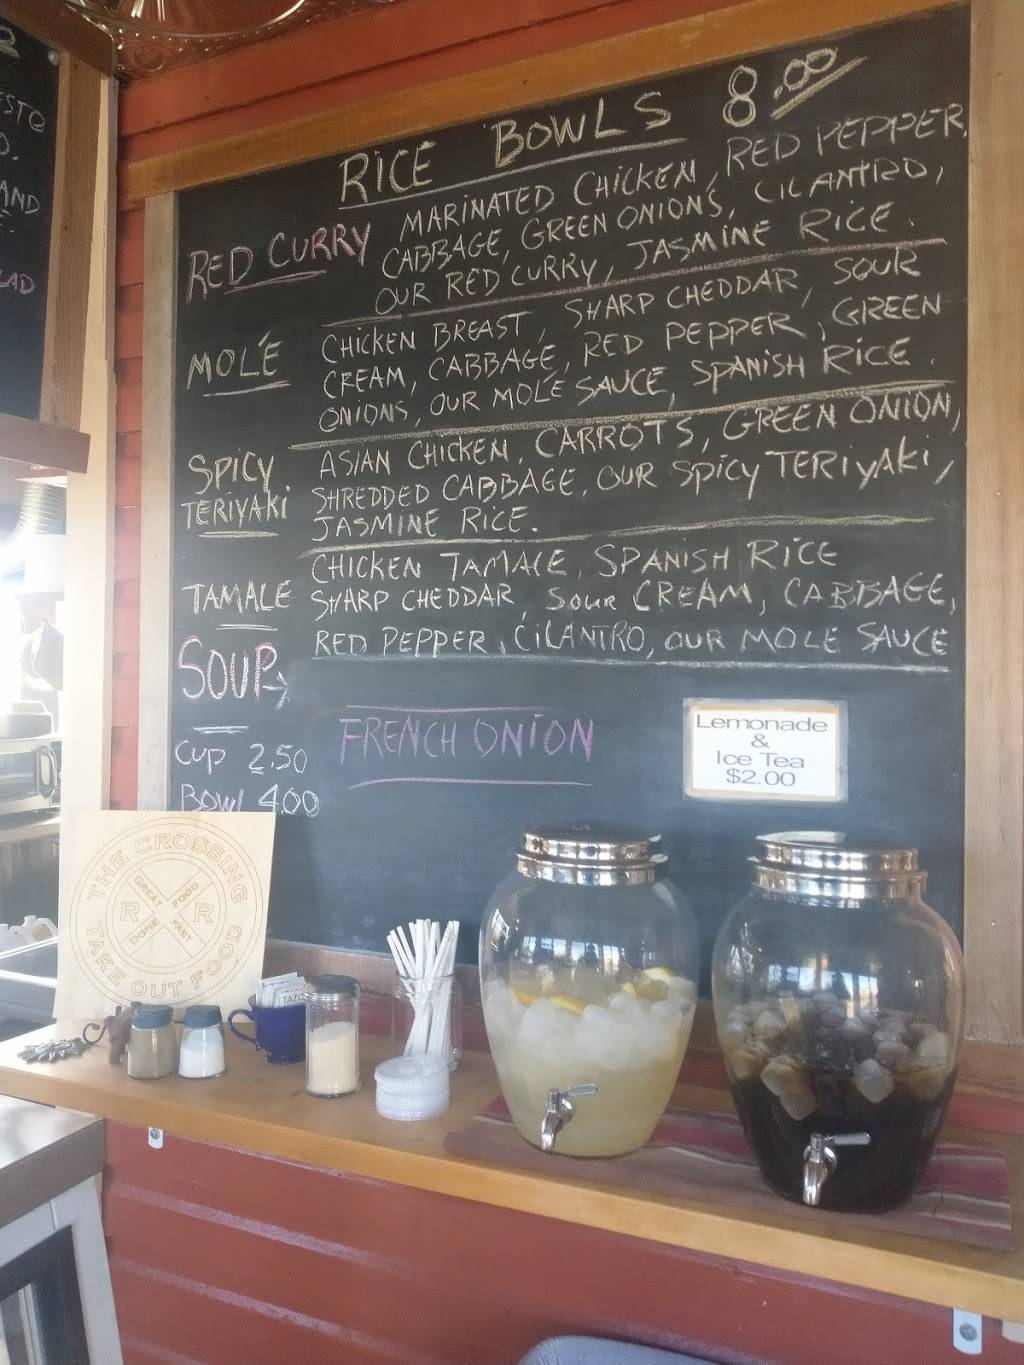 ESTO
AND
LAD
RICE BOWLS 8.00
RED CURRY MARINATED CHICKEN, RED PEPPER,
CABBAGE, GREEN ONIONS, CILANTRO,
OUR RED CURRY, JASMINE RICE.
MOLÉ CHICKEN BREAST, SHARP CHEDDAR, SOUR
CREAM, CABBAGE, RED PEPPER, GREEN
ONIONS, OUR MOLE SAUCE, SPANISH RICE.
SPICY TERIYAKI ASIAN CHICKEN, CARROTS, GREEN ONION,
SHREDDED CABBAGE, OUR SPICY TERIYAKI,
JASMINE RICE.
TAMALE CHICKEN TAMALE, SPANISH RICE
SHARP CHEDDAR, SOUR CREAM, CABBAGE,
RED PEPPER, CILANTRO, OUR MOLE SAUCE
SOUP
FRENCH ONION
CUP 2.50
BOWL 4.00
Lemonade
&
Ice Tea
$2.00
THE CROSSING
GREAT FOOD
R R
DONE FAST
TAKE OUT FOOD
TAZO